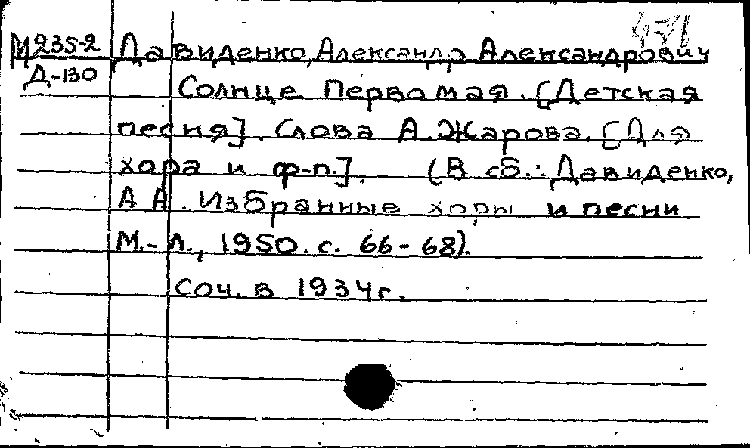 М235-2 Давиденко, Александр Александрович
Д-130 Солнце Первомая. [Детская
песня]. Слова А. Жарова. [Для
хора и ф-п.]. (В сб.: Давиденко,
А А. Избранные хоры и песни
М.-Л., 1950. с. 66-68).
Соч. в 1934г.